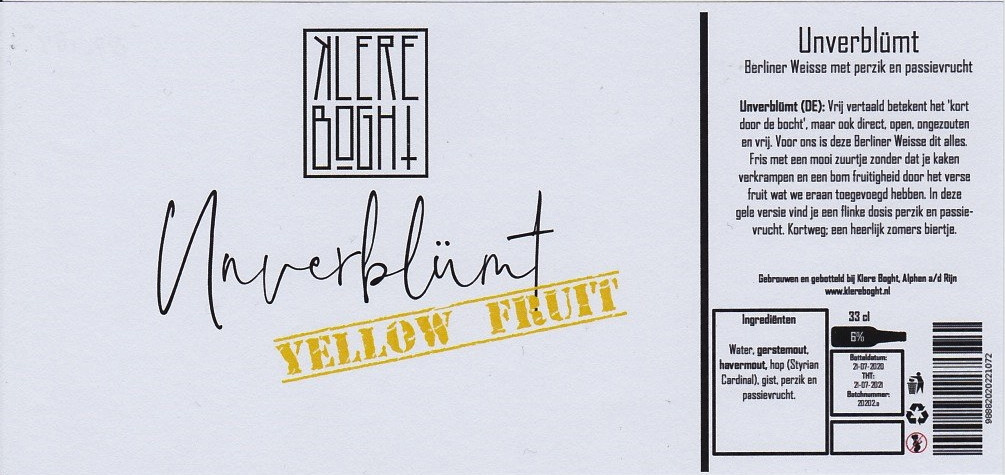 KLERE
BOGHT
Unverblümt
YELLOW FRUIT
Unverblümt
Berliner Weisse met perzik en passievrucht
Unverblümt (DE): Vrij vertaald betekent het 'kort
door de bocht', maar ook direct, open, ongezouten
en vrij. Voor ons is deze Berliner Weisse dit alles.
Fris met een mooi zuurtje zonder dat je kaken
verkrampen en een bom fruitigheid door het verse
fruit wat we eraan toegevoegd hebben. In deze
gele versie vind je een flinke dosis perzik en passie-
vrucht. Kortweg; een heerlijk zomers biertje.
Gebrouwen en gebotteld bij Klere Boght, Alphen a/d Rijn
www.klereboght.nl
Ingrediënten
Water, gerstemout,
havermout, hop (Styrian
Cardinal), gist, perzik en
passievrucht.
33 cl
6%
Botteldatum:
21-07-2020
THT:
21-07-2021
Batchnummer:
20202.a
98882020221072